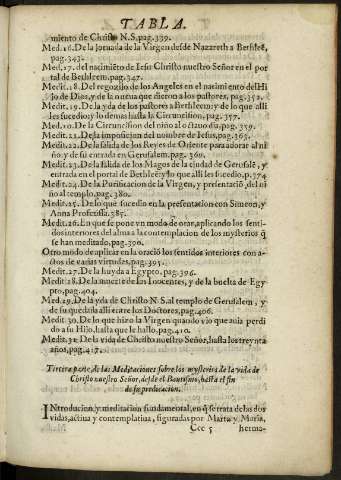 TABLA.
miento de Christo N.S.pag.339.
Med.16.De la jornada de la Virgen desde Nazareth a Bethleẽ,
pag.343.
Med.17.del nacimiẽto de Iesu Christo nuestro Señor en el por
tal de Bethleem.pag.347.
Medit.18.Del regozijo de los Angeles en el nacimiento del Hi
jo de Dios, y de la nueua que dieron a los pastores, pag.352.
Medit.19.De la yda de los pastores a Bethleem; y de lo que alli
les sucedio; y lo demas hasta la Circuncision, pag. 357.
Med.20.De la Circuncision del niño al octauo dia, pag.359.
Medit.21.De la imposicion del nombre de Iesus, pag.365.
Medit.22.De la salida de los Reyes de Oriente para adorar al ni
ño, y de su entrada en Gerusalem. pag. 369.
Medit.23.De la salida de los Magos de la ciudad de Gerusalẽ, y
entrada en el portal de Bethleẽ: y lo que alli les sucedio. p.374
Medit.24.De la Purificacion de la Virgen, y presentaciõ, del ni
ño al templo, pag.380.
Medit.25. De lo que sucedio en la presentacion con Simeon, y
Anna Profetissa.385.
Medit.26.En que se pone vn modo de orar, aplicando los senti-
dos interiores del alma a la contemplacion de los mysterios q̃
se han meditado, pag.390.
Otro modo de aplicar en la oració los sentidos interiores con a-
ctos de varias virtudes, pag.393.
Medit.27.De la huyda a Egypto. pag.396.
Medit.28.De la muerte de los Inocentes, y de la buelta de Egy
pto, pag.404.
Med.29.De la yda de Christo N.S.al templo de Gerusalem, y
de su quedada alli entre los Doctores, pag.406.
Medit.30.De lo que hizo la Virgen quando vio que auia perdi
do a su Hijo, hasta que le hallo, pag.410.
Medit.31.De la vida de Christo nuestro Señor, hasta los treynta
años, pag.417.
Tercera parte, de las Meditaciones sobre los mysterios de la vida de
Christo nuestro Señor, desde el Bautismo, hasta el fin
de su predicacion.
INtroducion, y meditacion fundamental, en q̃ se trata de las dos
vidas, actiua y contemplatiua, figuradas por Marta y Maria,
Ccc 5 herma-